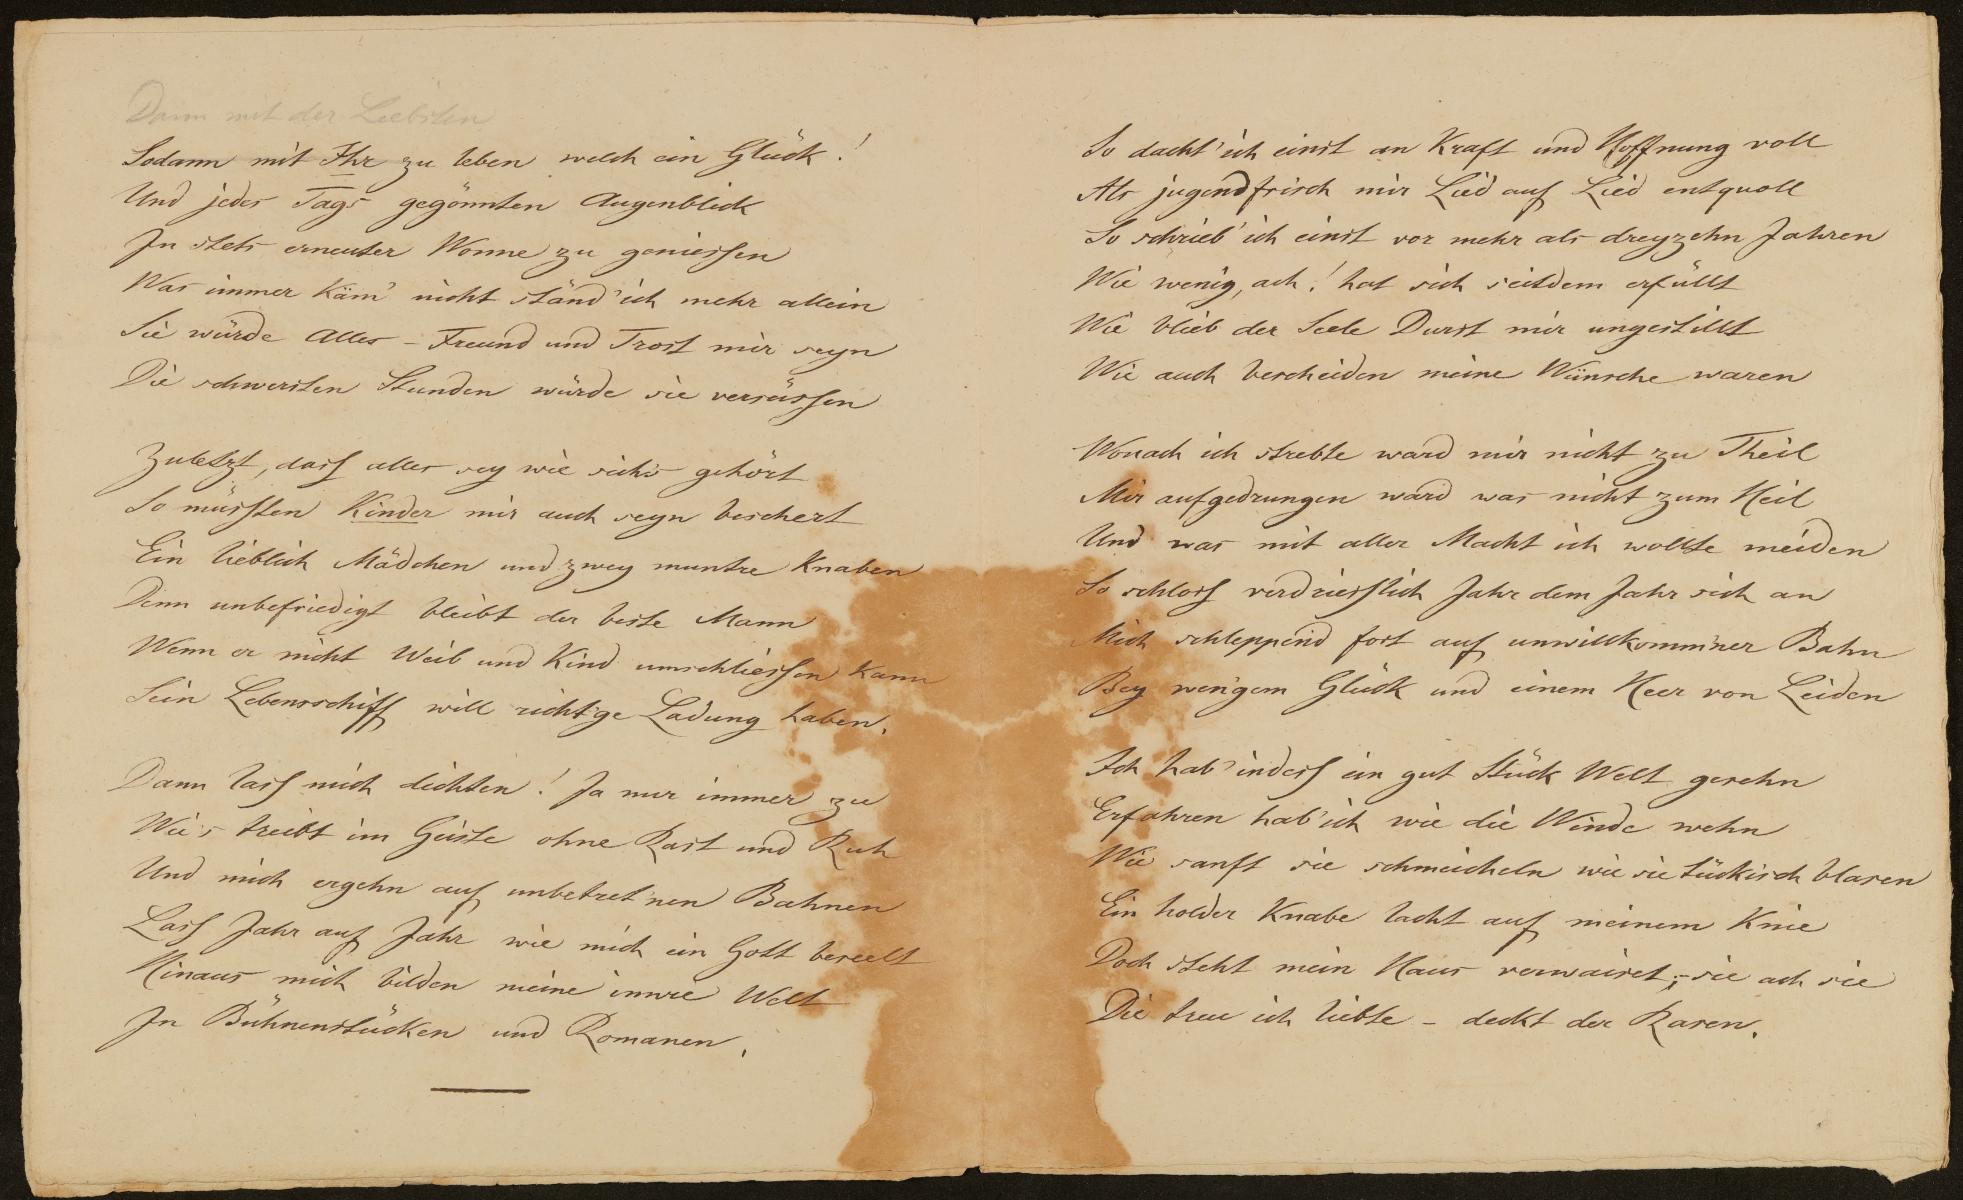 Dann mit der Liebsten
Sodann mit Ihr zu leben welch ein Glück!
Und jedes Tags gegönnten Augenblick
In stets erneuter Wonne zu geniessen
Was immer käm' nicht ständ' ich mehr allein
Sie würde Alles – Freund und Trost mir seyn
Die schwersten Stunden würde sie versüssen
Zuletzt, dass alles sey wie sich's gehört
So müssten Kinder mir auch seyn beschert
Ein lieblich Mädchen und zwey muntre Knaben
Denn unbefriedigt bleibt der beste Mann
Wenn er nicht Weib und Kind umschliessen kann
Sein Lebensschiff will richt'ge Ladung haben.
Dann lass mich dichten! Ja nur immer zu
Wie's treibt im Geiste ohne Rast und Ruh
Und mich ergehn auf unbetret'nen Bahnen
Lass Jahr auf Jahr wie mich ein Gott beseelt
Hinaus mich bilden meine innre Welt
In Bühnenstücken und Romanen.
So dacht' ich einst an Kraft und Hoffnung voll
Als jugendfrisch mir Lied auf Lied entquoll
So schrieb' ich einst vor mehr als dreyzehn Jahren
Wie wenig, ach! hat sich seitdem erfüllt
Wie blieb der Seele Durst mir ungestillt
Wie auch bescheiden meine Wünsche waren
Wonach ich strebte ward mir nicht zu Theil
Mir aufgedrungen ward was nicht zum Heil
Und was mit aller Macht ich wollte meiden
So schloss verdriesslich Jahr dem Jahr sich an
Mich schleppend fort auf unwillkomm'ner Bahn
Bey wen'gem Glück und einem Heer von Leiden
Ich hab' indess ein gut Stück Welt gesehn
Erfahren hab' ich wie die Winde wehn
Wie sanft sie schmeicheln wie sie tückisch blasen
Ein holder Knabe lacht auf meinem Knie
Doch steht mein Haus verwaiset; – sie ach sie
Die treu ich liebte – deckt der Rasen.